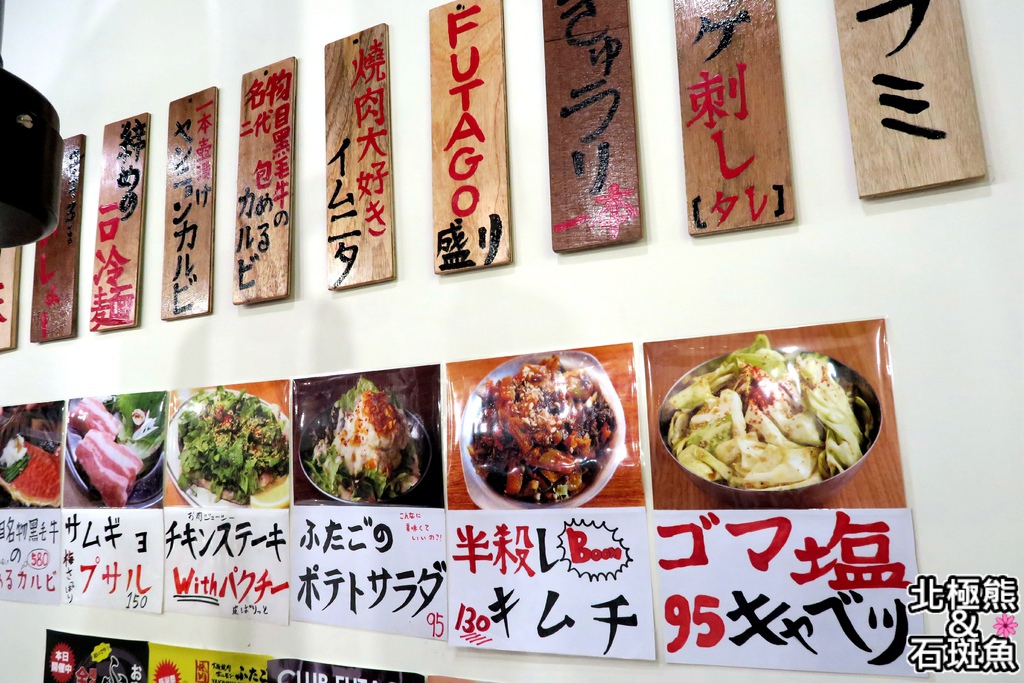 フミ
ケ刺し
[タレ]
きゅうり
一本
FUTAGO
盛り
燒肉大好き
イムニタ
二代目黒毛牛の
名物
包める
カルビ
一本壺漬け
ヤンニョンカルビ
締めの
一口冷麺
名物黒毛牛
の
580
めるカルビ
サムギョ
プサル
150
お肉ジューシー
チキンステーキ
Withパクチー
皮ぱりっと
ふたごの
こんなに
美味くて
いいのさ!
ポテトサラダ
95
半殺し
Boom
130
キムチ
ゴマ塩
95
キャベツ
本日
開催中
CLUB FUTAGO
北極熊
&
石斑魚